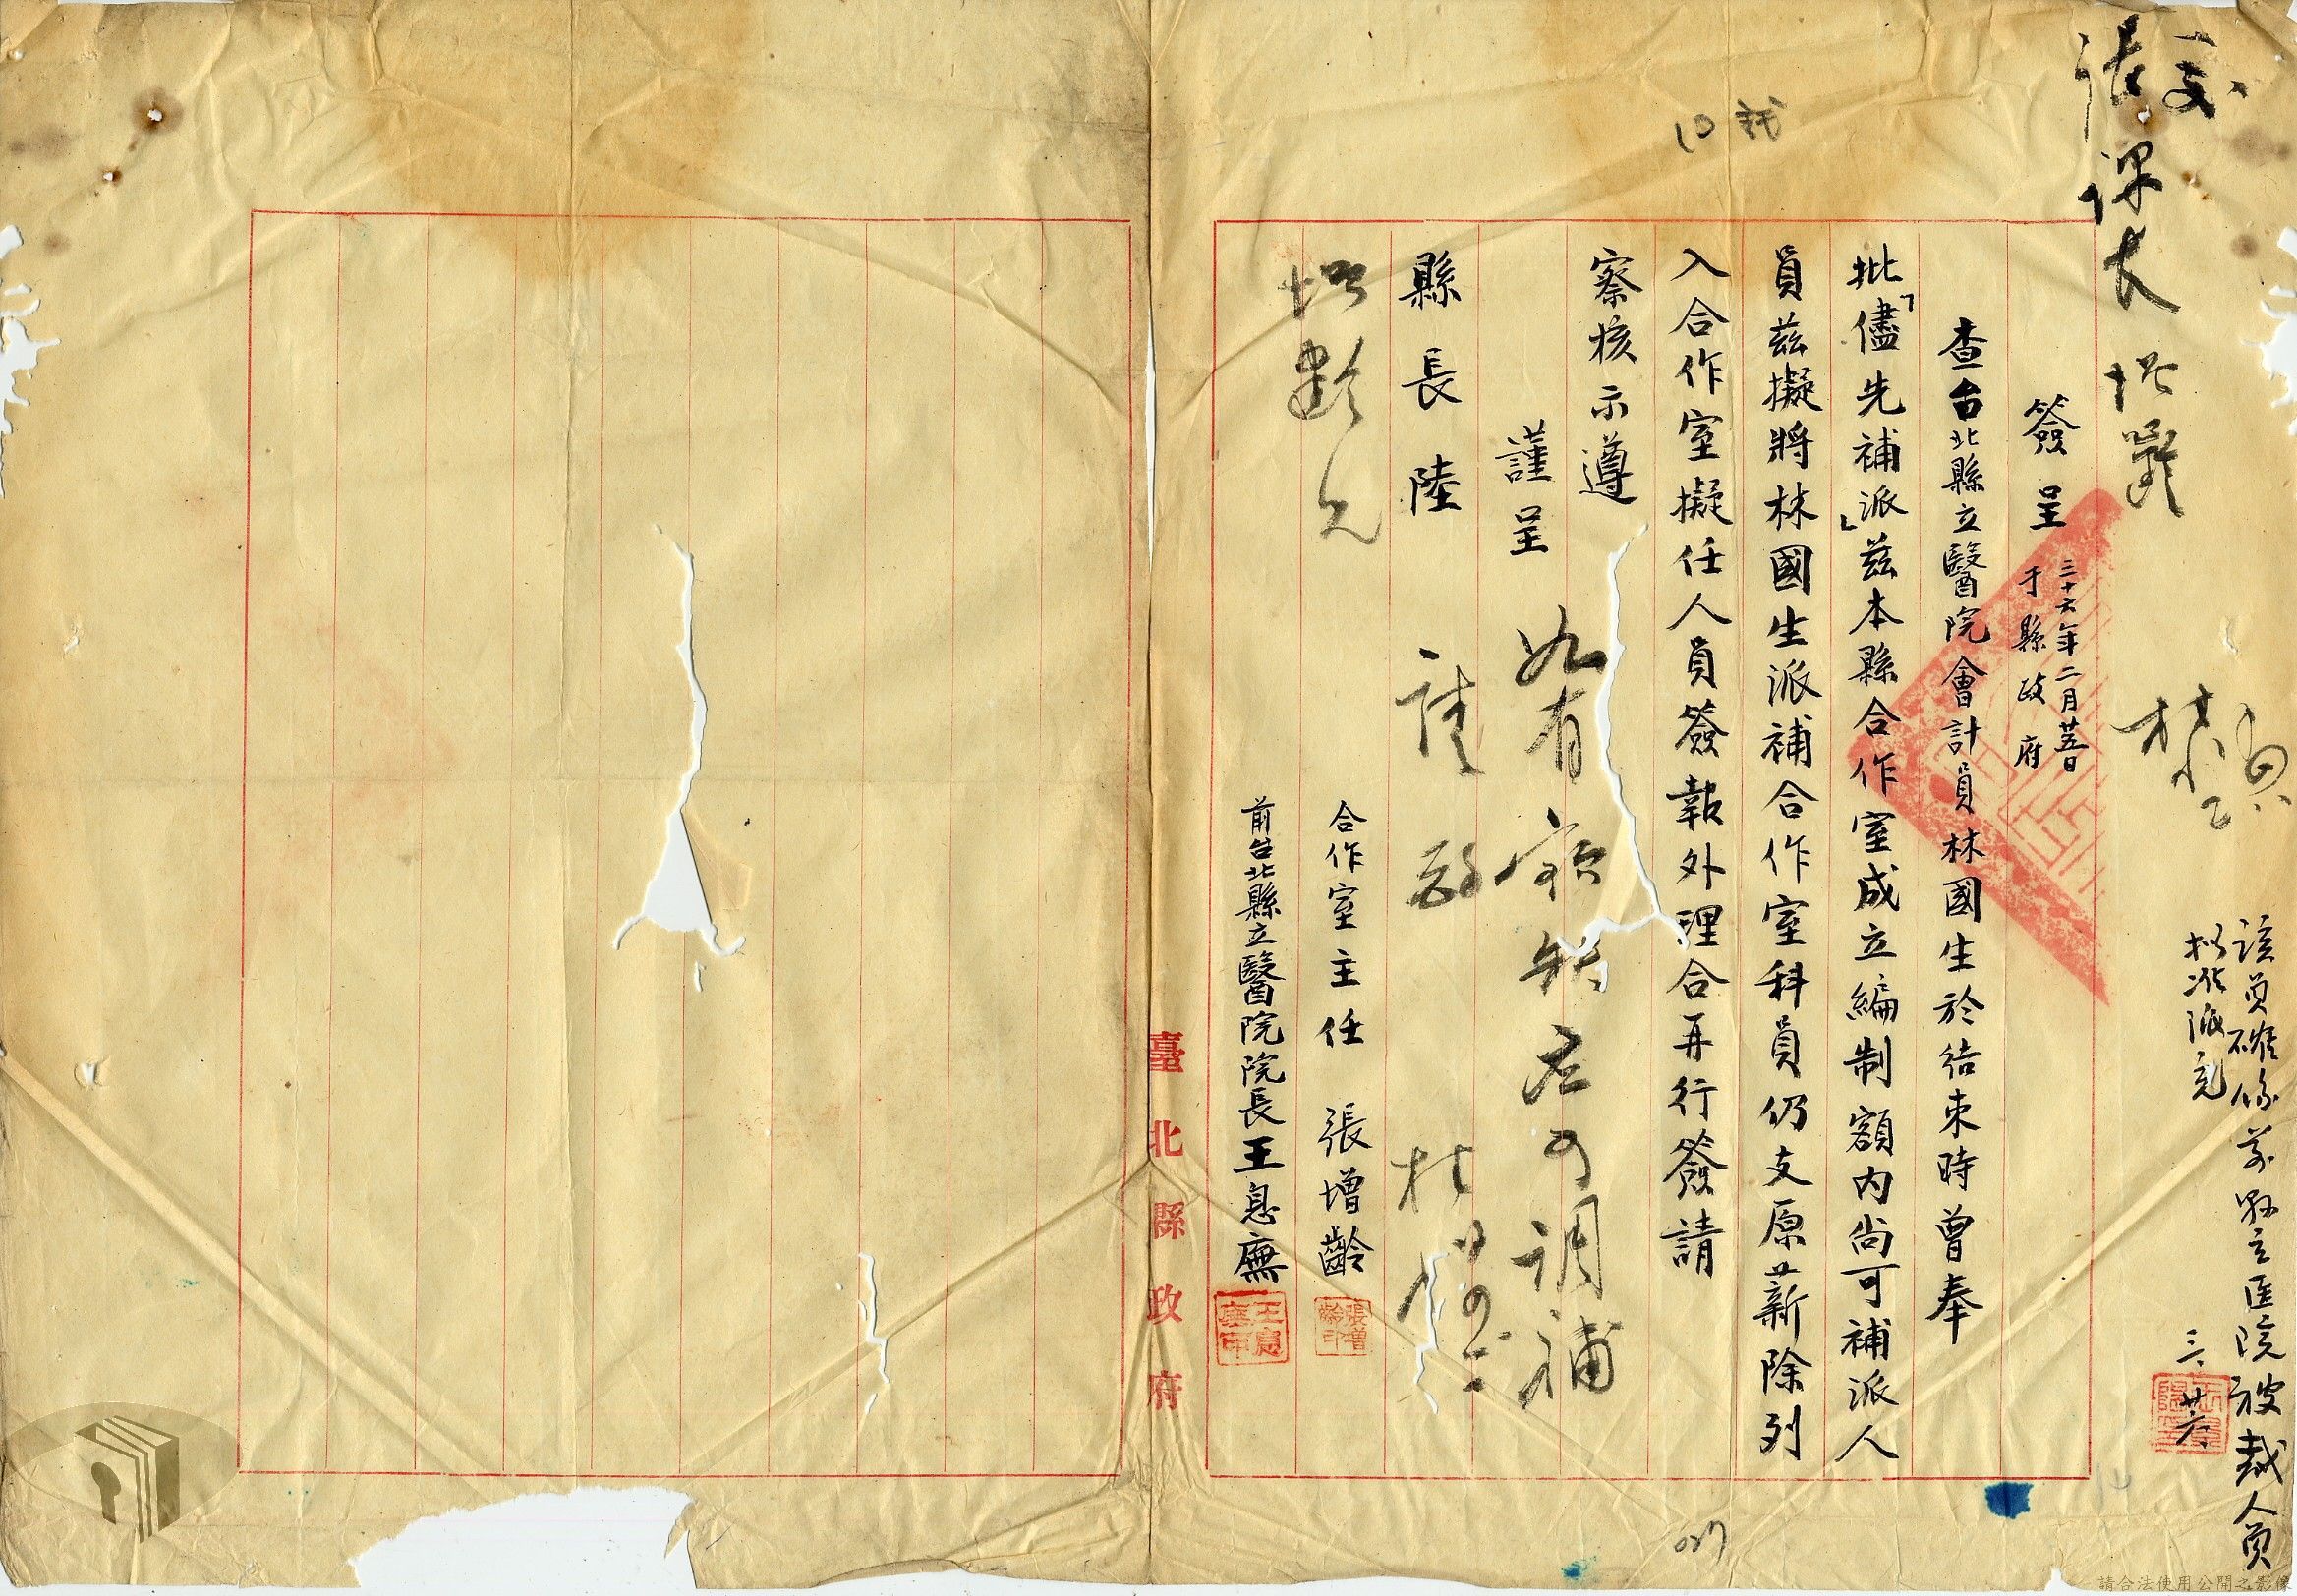 交
張課長增齡
該員確係前縣立医院被裁人員
拟准派充
三、廿六
簽呈
三十六年二月廿五日
于縣政府
查台北縣立醫院會計員林國生於結束時曾奉
批「儘先補派」茲本縣合作室成立編制額內尚可補派人
員茲擬將林國生派補合作室科員仍支原薪除列
入合作室擬任人員簽報外理合再行簽請
察核示遵
謹呈
縣長陸
如有額缺應可調補
請
合作室主任 張增齡
張增齡印
前台北縣立醫院院長王息廡
臺北縣政府
請合法使用公開之影像